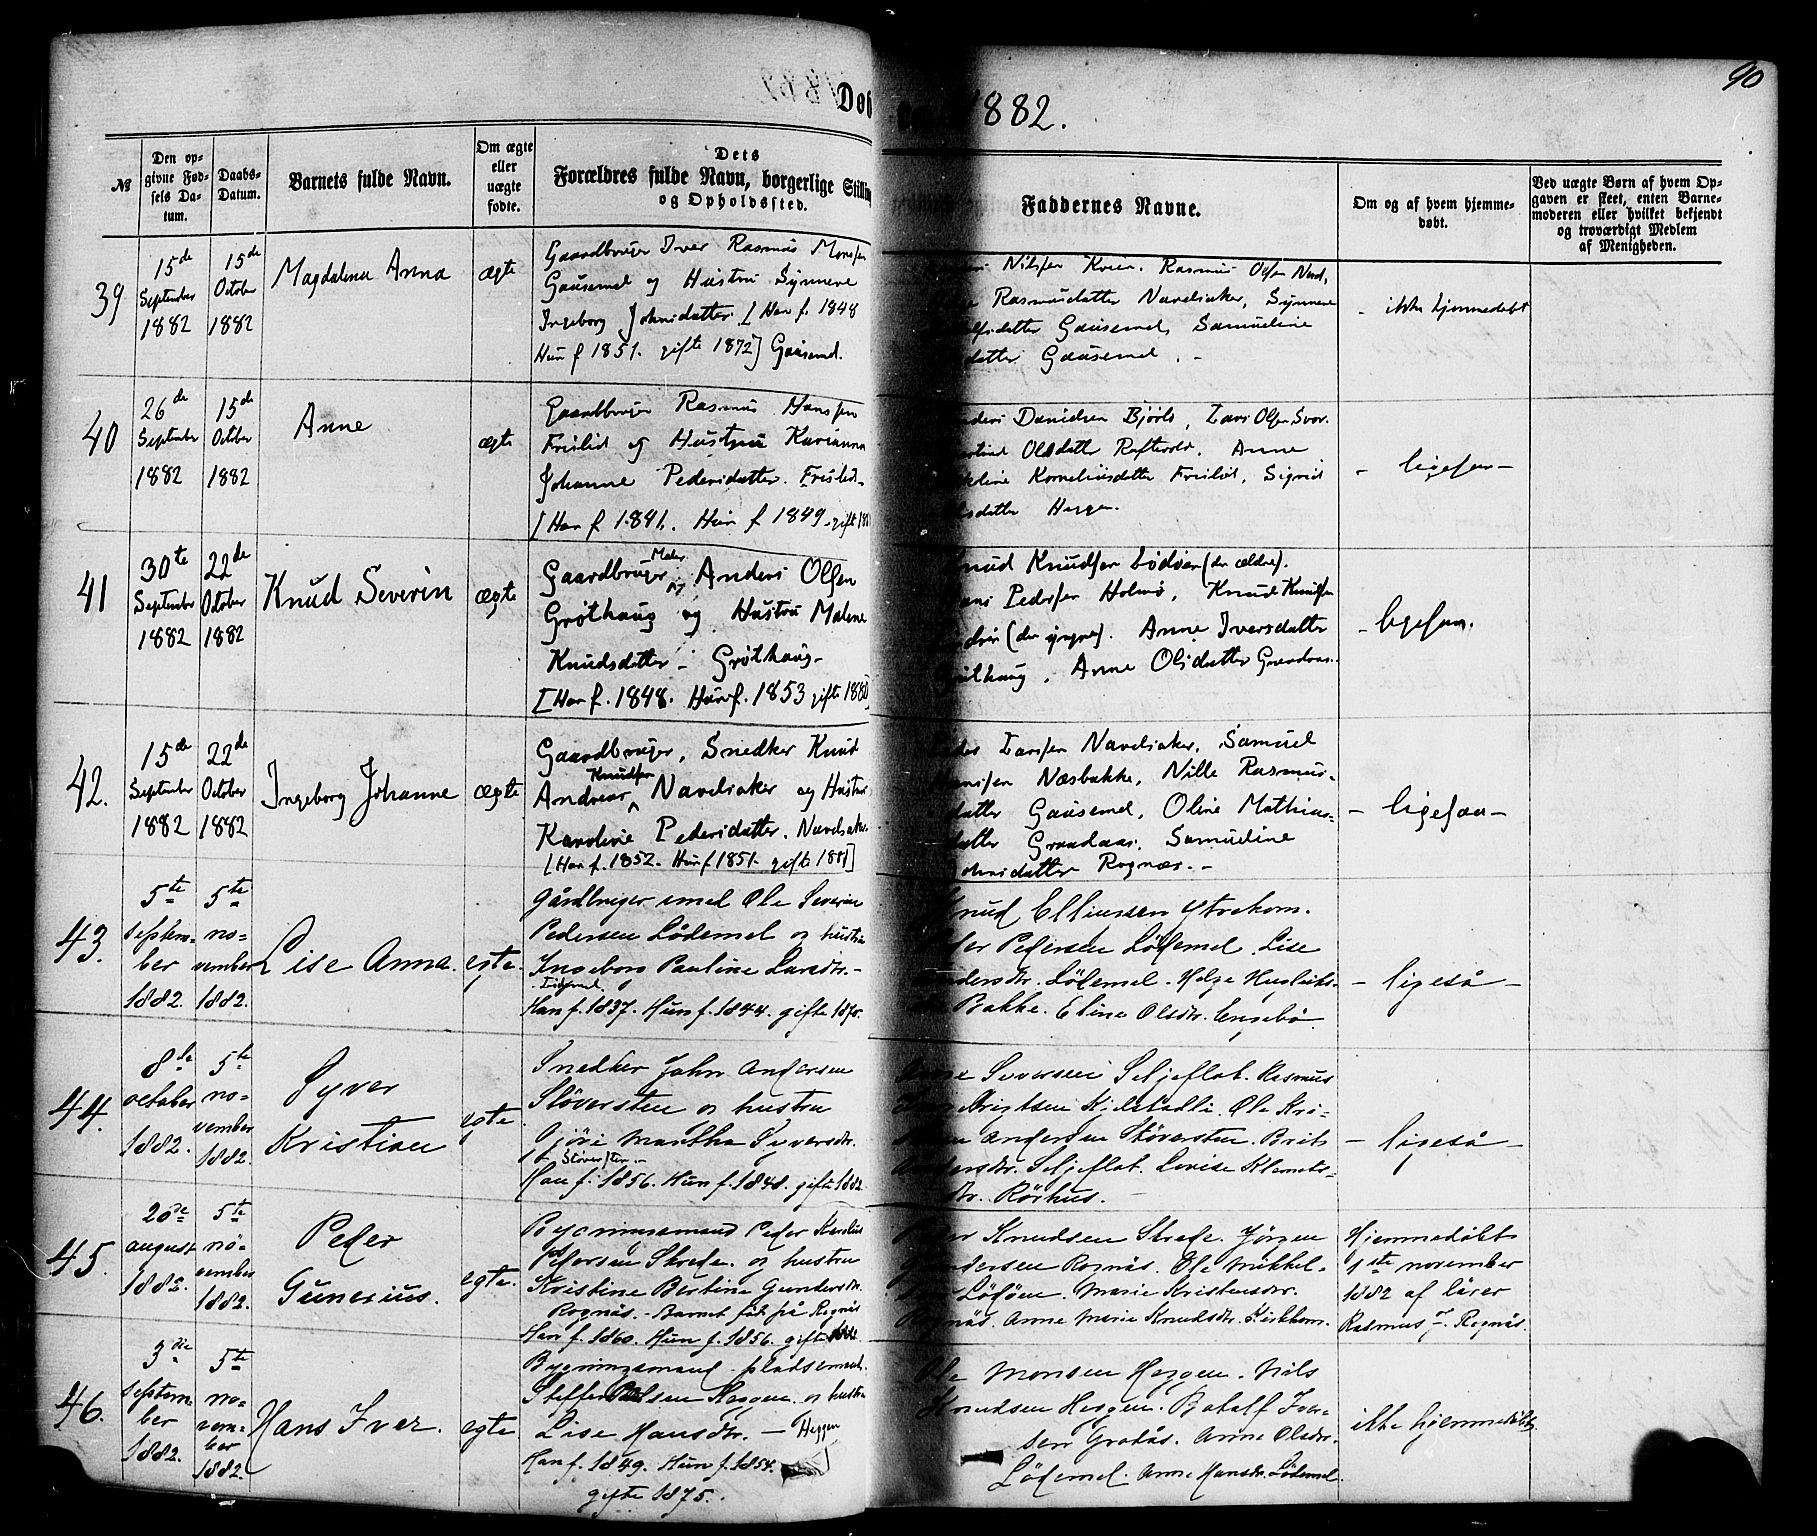 90
Døb 1882.
№
Den opgivne Fødsels Datum.
Daabs-Datum.
Barnets fulde Navn.
Om ægte eller uægte fødte.
Dets Forældres fulde Navn, borgerlige Stilling og Opholdssted.
Faddernes Navne.
Om og af hvem hjemmedøbt.
Ved uægte Børn af hvem Opgaven er skeet, enten Barnemoderen eller hvilket bekjendt og troværdigt Medlem af Menigheden.
39
15de September 1882
15de October 1882
Magdalena Anna
ægte
Gaardbruger Iver Rasmus Monsen
Gausemel og Hustru Synneve
Ingeborg Johnsdatter. [Han f. 1848
Hun f 1851. gifte 1872] Gausemel.
Nilssen Rasmus Olsen
Rasmusdatter Navelsaker, Synneve
datter Gausemel, Samueline
datter Gausemel. -
- ikke hjemmedøbt
40
26de September 1882
15de October 1882
Anne
ægte
Gaardbruger Rasmus Hanssen
Frislid og Hustru Karianna
Johanne Pedersdatter. Frislid-
[Han f 1841. Hun f 1849 - gift
Danielsen Bjørlo, Lars Olsen
Olsdatter Reftvold, Anne
Korneliusdatter Frislid, Sigrid
datter Heggen.
- ligesaa -
41
30te September 1882
22de October 1882
Knud Severin
ægte
Gaardbruger og Maler Anders Olsen
Grøthaug og Hustru Malene
Knudsdatter - Grøthaug -
[Han f. 1848. Hun f. 1853 gifte 1880]
Knud Knudsen Lødøen (den ældre).
Pedersen Holmø, Knud Knudsen
(den yngre). Anne Iversdatter
Grøthaug, Anne Olsdatter Grandaas.
- ligesaa.
42.
15de September 1882
22de October 1882
Ingeborg Johanne
ægte
Gaardbruger, Snedker Knud
Andreas Knudsen Navelsaker og Hustru
Karoline Pedersdatter. Navelsaker
[Han f. 1852. Hun f 1851. gifte 1881]
Larsen Navelsaker, Samuel
Hansen Næsbakke, Nille Rasmus-
datter Gausemel, Oline Mathias-
datter Grandaas, Samueline
Johnsdatter Rognæs. -
- ligesaa -
43.
5te september 1882.
5te november 1882.
Lise Anna.
egte.
Gårdbruger smed Ole Severin
Pedersen Lødemel og hustru
Ingeborg Pauline Larsdtr. -
Lødemel.
Han f. 1837. Hun f. 1844. gifte 1870.
Knud Elliassen Ytrehorn.
Peder Pedersen Lødemel. Lise
Andersdtr. Lødemel. Helge
Bakke. Eline Olsdtr. Engebø.
- ligeså -
44.
8de october 1882.
5te november 1882.
Syver Kristian
egte.
Snedker John Andersen
Støversten og hustru
Gjøri Martha Syversdtr.
Støversten -
Han f. 1856. Hun f. 1848. gifte 1882.
Syversen Seljeflot. Rasmus
Kjelstadli. Ole Kri-
Andersen Støversten. Brit
Andersdtr. Seljeflot. Lovise Klemets-
dtr. Rørhus. -
- ligeså -
45.
20de august 1882.
5te november 1882.
Peder Gunerius.
egte.
Bygningsmand Peder Karolus
Pedersen Skrede. og hustru
Kristine Bertine Gundersdtr.
Rognås. - Barnet født på Rognås
Han f. 1860. Hun f. 1856. gifte
Peder Knudsen Skrede. Jørgen
Gundersen Rognås. Ole Mikkel-
Lødøen. Marie Kristensdtr.
Rognås. Anne Marie Knudsdtr. Kirkhorn.
Hjemmedøbt
1ste november
1882 af lærer
Rasmus J. Rognås.
46.
3die september 1882.
5te november 1882.
Hans Iver.
egte
Bygningsmand. pladsemand.
Steffen Olsen Heggen. og hustru
Lise Hansdtr. - Heggen
Han f. 1849. Hun f. 1854.
gifte 1875.
Ole Monsen Heggen. Nils
Knudsen Heggen. Botolf Iver-
sen Grotås. Anne Olsdtr.
Lødemel. Anne Hansdtr. Lødemel.
ikke hjemmedøbt.